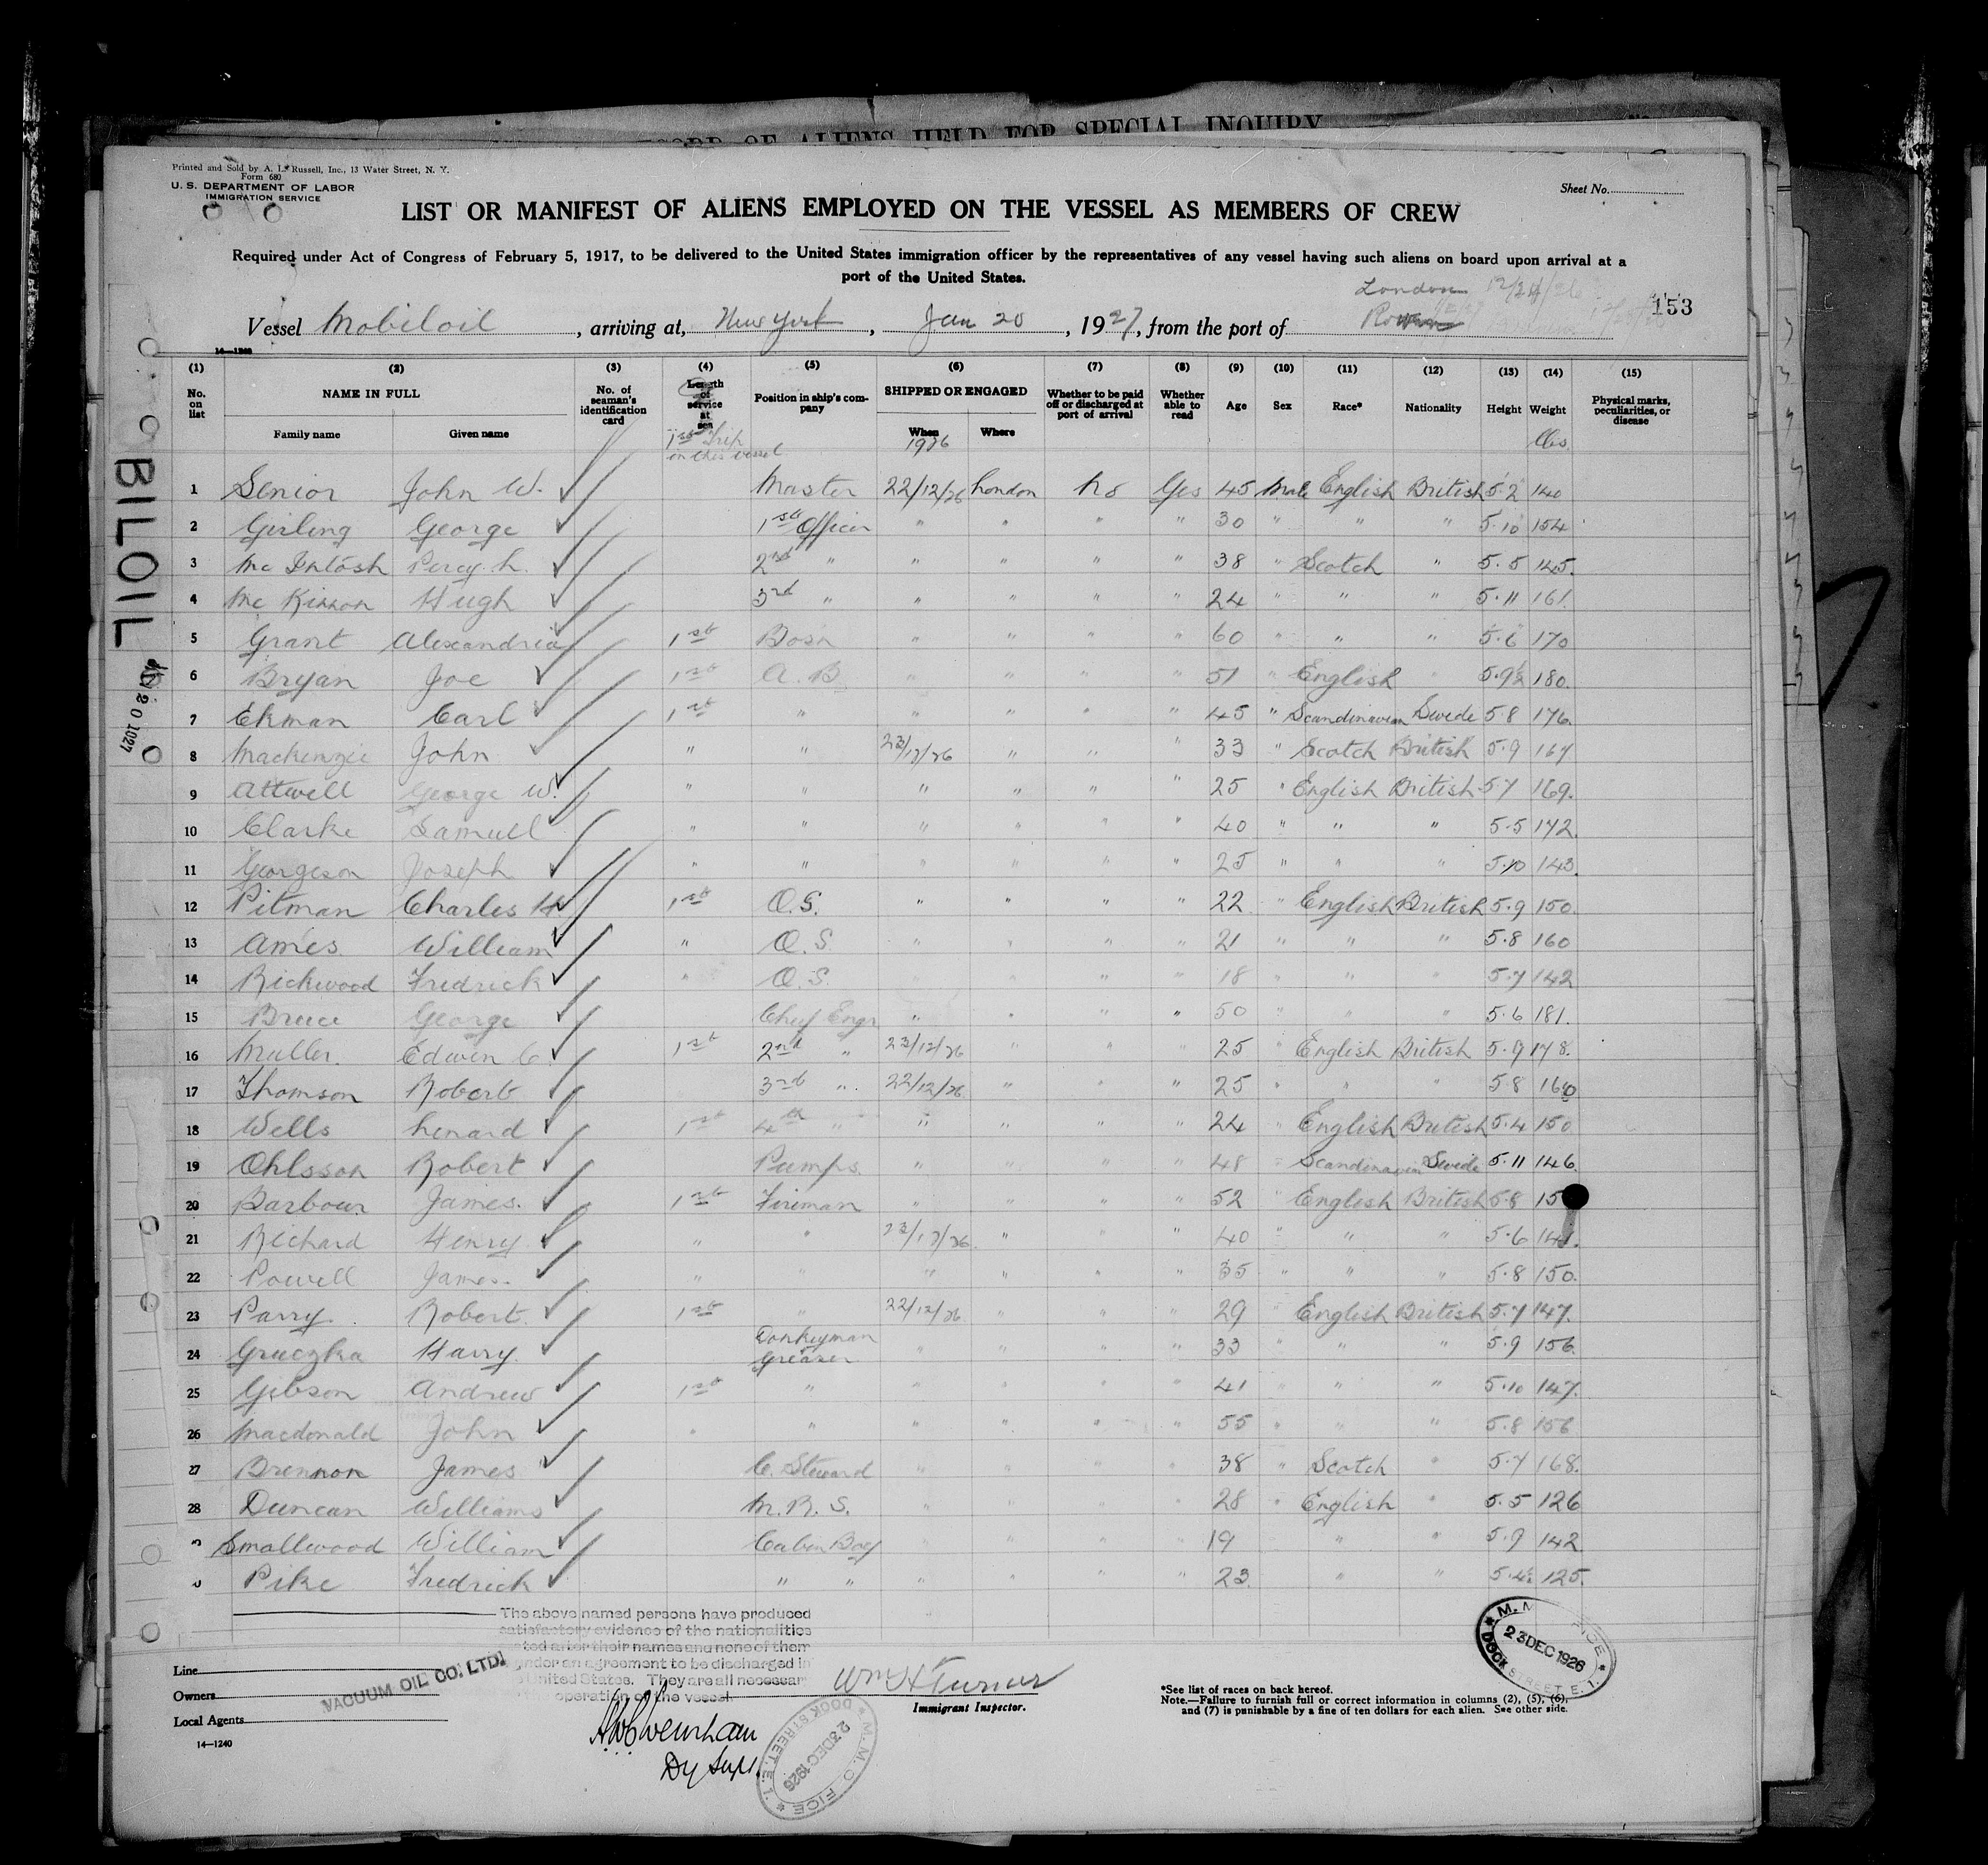 RECORD OF ALIENS HELD FOR SPECIAL INQUIRY
Printed and Sold by A. L. Russell, Inc., 13 Water Street, N. Y.
Form 680
U. S. DEPARTMENT OF LABOR
IMMIGRATION SERVICE
Sheet No.
LIST OR MANIFEST OF ALIENS EMPLOYED ON THE VESSEL AS MEMBERS OF CREW
Required under Act of Congress of February 5, 1917, to be delivered to the United States immigration officer by the representatives of any vessel having such aliens on board upon arrival at a
port of the United States.
London 12/24/26
153
Vessel Mobiloil, arriving at, New York, Jan 20, 1927, from the port of
14—1240
(1) (2) (3) (4) (5) (6) (7) (8) (9) (10) (11) (12) (13) (14) (15)
No. on list NAME IN FULL Family name Given name No. of seaman's identification card Length of service at sea Position in ship's company SHIPPED OR ENGAGED When Where Whether to be paid off or discharged at port of arrival Whether able to read Age Sex Race* Nationality Height Weight Physical marks, peculiarities, or disease
1st Trip in this vessel 1926 lbs
1 Senior John W. Master 22/12/26 London No Yes 45 Male English British 5.2 140
2 Girling George 1st Officer " " " " 30 " " " 5.10 154
3 Mc Intosh Percy h. 2nd " " " " " 38 " Scotch " 5.5 145.
4 Mc Kinnon Hugh 3rd " " " " " 24 " " " 5.11 161.
5 Grant Alexandria 1st Bosn " " " " 60 " " " 5.6 170
6 Bryan Joe 1st A.B " " " " 51 " English " 5.9½ 180.
7 Ekman Carl 1st " " " " " 45 " Scandinavian Swede 5.8 176.
8 Mackenzie John " " 23/12/26 " " " 33 " Scotch British 5.9 167
9 Attwell George W. " " " " " " 25 " English British 5.7 169.
10 Clarke Samuel " " " " " " 40 " " " 5.5 172.
11 Georgeson Joseph " " " " " " 25 " " " 5.10 143.
12 Pitman Charles H 1st O.S. " " " " 22 " English British 5.9 150.
13 Ames William " O.S. " " " " 21 " " " 5.8 160
14 Rickwood Fredrick " O.S. " " " 18 " " " 5.7 142
15 Bruce George Chief Engr " " " " 50 " " " 5.6 181.
16 Muller. Edwin C. 1st 2nd " 23/12/26 " " " 25 " English British 5.9 178.
17 Thomson Robert 3rd " 22/12/26 " " " 25 " " " 5.8 160
18 Wells Lenard 1st 4th " " " " " 24 " English British 5.4 150
19 Ohlsson Robert Pumps " " " " 48 " Scandinavian Swede 5.11 146.
20 Barbour James. 1st Fireman " " " " 52 " English British 5.8 15
21 Richard Henry " " 23/12/26 " " " 40 " " " 5.6 141.
22 Powell James. " " " " " " 35 " " " 5.8 150.
23 Parry Robert. 1st " 22/12/26 " " " 29 " English British 5.7 147.
24 Gruczka Harry Donkeyman Greaser " " " " 33 " " " 5.9 156.
25 Gibson Andrew 1st " " " " " 41 " " " 5.10 147.
26 Macdonald John " " " " " " 55 " " " 5.8 156
27 Brennon James C. Steward " " " " 38 " Scotch " 5.7 168.
28 Duncan Williams M.R.S. " " " " 28 " English " 5.5 126
Smallwood William Cabin Boy " " " 19 " " 5.9 142
Pike Fredrick " " " " " " 23 " " 5.4½ 125.
The above named persons have produced
satisfactory evidence of the nationalities
ted after their names and none of them
under an agreement to be discharged in
United States. They are all necessar
operation of the vessel.
Line
Owners VACUUM OIL CO. LTD.
Local Agents
14—1240
Wm H Turner
Immigrant Inspector.
Dy Supt.
M. M. O FICE
23 DEC 1926
DOCK STREET. E. 1.
*See list of races on back hereof.
Note.—Failure to furnish full or correct information in columns (2), (5), (6),
and (7) is punishable by a fine of ten dollars for each alien. See other side.
M. M FICE
23 DEC 1926
DOCK STREET. E. 1.
BILOIL
JAN 20 1927